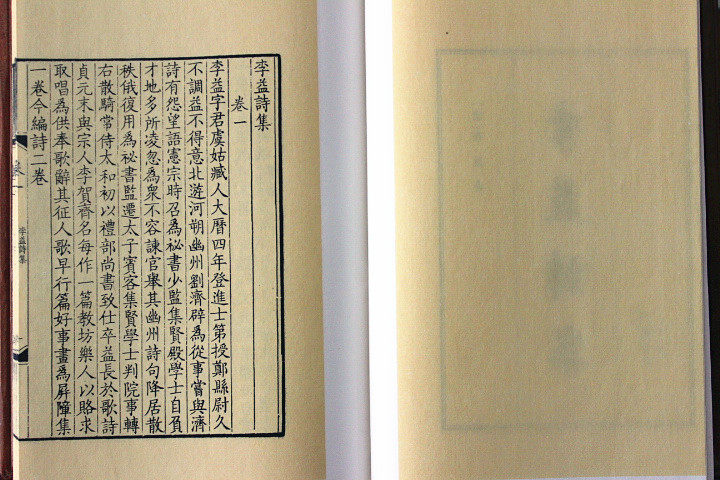 李益詩集
卷一
李益字君虞姑臧人大曆四年登進士第授鄭縣尉久
不調益不得意北遊河朔幽州劉濟辟為從事嘗與濟
詩有怨望語憲宗時召為祕書少監集賢殿學士自負
才地多所凌忽為衆不容諫官舉其幽州詩句降居散
秩俄復用為祕書監遷太子賓客集賢學士判院事轉
右散騎常侍太和初以禮部尚書致仕卒益長於歌詩
貞元末與宗人李賀齊名每作一篇教坊樂人以賂求
取唱為供奉歌辭其征人歌早行篇好事畫為屏障集
一卷今編詩二卷
卷一
李益詩集